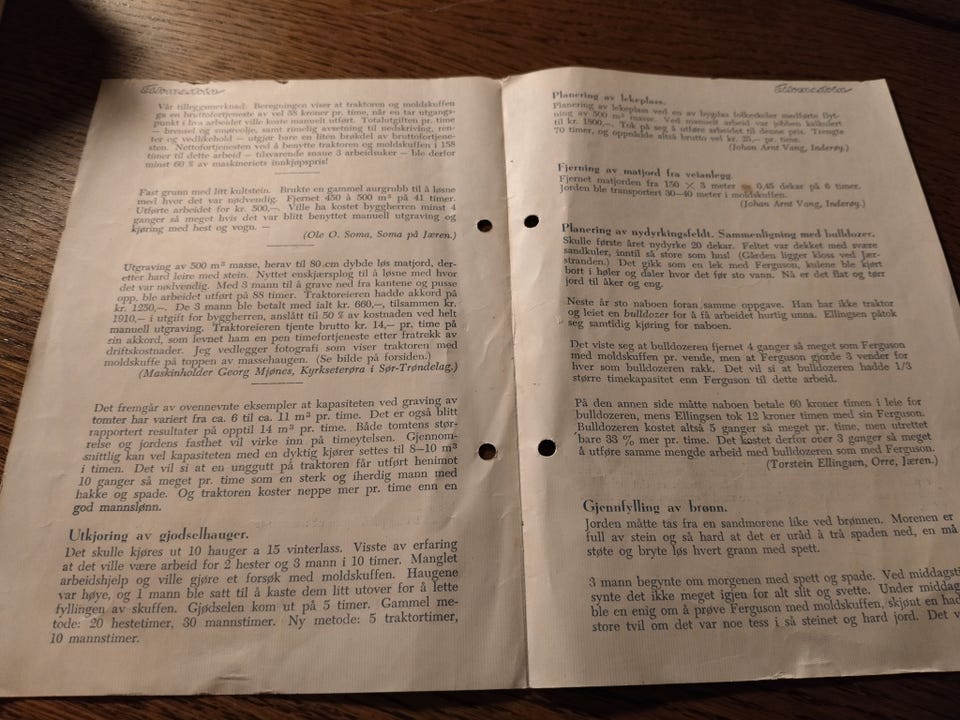 Vår tilleggsmerknad: Beregningen viser at traktoren og moldskuffen
ga en bruttofortjeneste av vel 38 kroner pr. time, når en tar utgangs-
punkt i hva arbeidet ville koste manuelt utført. Totalutgiften pr. time
— brensel og smøreolje, samt rimelig avsetning til nedskriving, ren-
ter og vedlikehold — utgjør bare en liten brøkdel av bruttofortjene-
sten. Nettofortjenesten ved å benytte traktoren og moldskuffen i 158
timer til dette arbeid — tilsvarende snaue 3 arbeidsuker — ble derfor
minst 60 % av maskineriets innkjøpspris!
Fast grunn med litt kultstein. Brukte en gammel aurgrabb til å løsne
med hvor det var nødvendig. Fjernet 450 à 500 m³ på 41 timer.
Utførte arbeidet for kr. 500,—. Ville ha kostet byggherren minst 4
ganger så meget hvis det var blitt benyttet manuell utgraving og
kjøring med hest og vogn. —
(Ole O. Soma, Soma på Jæren.)
Utgraving av 500 m³ masse, herav til 80 cm dybde løs matjord, der-
etter hard leire med stein. Nyttet enskjærsplog til å løsne med hvor
det var nødvendig. Med 3 mann til å grave ned fra kantene og pusse
opp, ble arbeidet utført på 88 timer. Traktoreieren hadde akkord på
kr. 1250,—. De 3 mann ble betalt med ialt kr. 660,—, tilsammen kr.
1910,— i utgift for byggherren, anslått til 50 % av kostnaden ved helt
manuell utgraving. Traktoreieren tjente brutto kr. 14,— pr. time på
sin akkord, som levnet ham en pen timefortjeneste etter fratrekk av
driftskostnader. Jeg vedlegger fotografi som viser traktoren med
moldskuffe på toppen av massehaugen. (Se bilde på forsiden.)
(Maskinholder Georg Mjønes, Kyrkseterøra i Sør-Trøndelag.)
Det fremgår av ovennevnte eksempler at kapasiteten ved graving av
tomter har variert fra ca. 6 til ca. 11 m³ pr. time. Det er også blitt
rapportert resultater på opptil 14 m³ pr. time. Både tomtens stør-
relse og jordens fasthet vil virke inn på timeytelsen. Gjennom-
snittlig kan vel kapasiteten med en dyktig kjører settes til 8—10 m³
i timen. Det vil si at en unggutt på traktoren får utført henimot
10 ganger så meget pr. time som en sterk og iherdig mann med
hakke og spade. Og traktoren koster neppe mer pr. time enn en
god mannslønn.
Utkjøring av gjødselhauger.
Det skulle kjøres ut 10 hauger a 15 vinterlass. Visste av erfaring
at det ville være arbeid for 2 hester og 3 mann i 10 timer. Manglet
arbeidshjelp og ville gjøre et forsøk med moldskuffen. Haugene
var høye, og 1 mann ble satt til å kaste dem litt utover for å lette
fyllingen av skuffen. Gjødselen kom ut på 5 timer. Gammel me-
tode: 20 hestetimer, 30 mannstimer. Ny metode: 5 traktortimer,
10 mannstimer.
Planering av lekeplass.
Planering av lekeplass ved en av bygdas folkedoler medførte flyt-
ning av 300 m³ masse. Ved manuelt arbeid var jobben kalkulert
til kr. 1800,—. Tok på seg å utføre arbeidet til denne pris. Trengte
70 timer, og oppnådde altså brutto vel kr. 25,— pr. time.
(Johan Arnt Vang, Inderøy.)
Fjerning av matjord fra veianlegg.
Fjernet matjorden fra 150 × 3 meter 0,45 dekar på 6 timer.
Jorden ble transportert 30—40 meter i moldskuffen.
(Johan Arnt Vang, Inderøy.)
Planering av nydyrkingsfeldt. Sammenligning med bulldozer.
Skulle første året nydyrke 20 dekar. Feltet var dekket med svære
sandkuler, inntil så store som hus! (Gården ligger kloss ved Jær-
stranden.) Det gikk som en lek med Ferguson, knulene ble kjørt
bort i høler og daler hvor det før sto vann. Nå er det flat og tørr
jord til åker og eng.
Neste år sto naboen foran samme oppgave. Han har ikke traktor
og leiet en bulldozer for å få arbeidet hurtig unna. Ellingsen påtok
seg samtidig kjøring for naboen.
Det viste seg at bulldozeren fjernet 4 ganger så meget som Ferguson
med moldskuffen pr. vende, men at Ferguson gjorde 3 vender for
hver som bulldozeren rakk. Det vil si at bulldozeren hadde 1/3
større timekapasitet enn Ferguson til dette arbeid.
På den annen side måtte naboen betale 60 kroner timen i leie for
bulldozeren, mens Ellingsen tok 12 kroner timen med sin Ferguson.
Bulldozeren kostet altså 5 ganger så meget pr. time, men utrettet
bare 33 % mer pr. time. Det kostet derfor over 3 ganger så meget
å utføre samme mengde arbeid med bulldozeren som med Ferguson.
(Torstein Ellingsen, Orre, Jæren.)
Gjennfylling av brønn.
Jorden måtte tas fra en sandmorene like ved brønnen. Morenen er
full av stein og så hard at det er uråd å trå spaden ned, en må
støte og bryte løs hvert grann med spett.
3 mann begynte om morgenen med spett og spade. Ved middagsti
synte det ikke meget igjen for alt slit og svette. Under middag
ble en enig om å prøve Ferguson med moldskuffen, skjønt en had
store tvil om det var noe tess i så steinet og hard jord. Det v